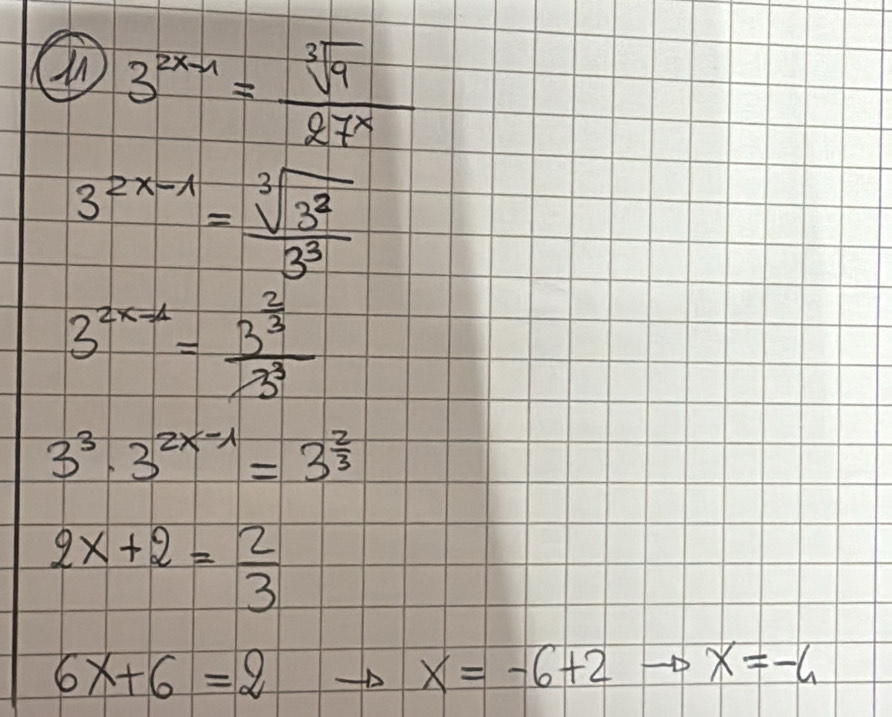 11 3^{2x-1} = \frac{\sqrt[3]{9}}{27^x}
3^{2x-1} = \frac{\sqrt[3]{3^2}}{3^3}
3^{2x-1} = \frac{3^{\frac{2}{3}}}{3^3}
3^3 · 3^{2x-1} = 3^{\frac{2}{3}}
2x+2 = \frac{2}{3}
6x+6 = 2 → x = -6+2 → x = -4